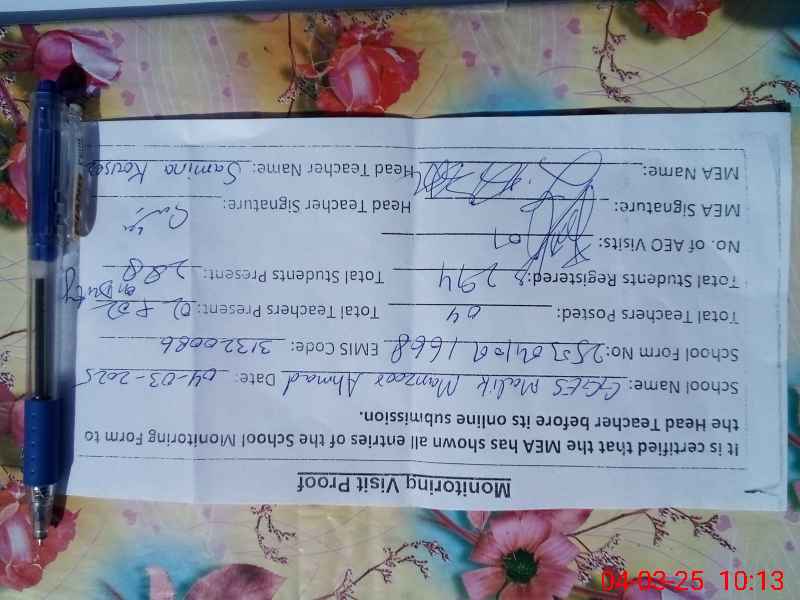 Monitoring Visit Proof
It is certified that the MEA has shown all entries of the School Monitoring Form to
the Head Teacher before its online submission.
School Name: GGES Malik Manzoor Ahmad Date: 04-03-2025
School Form No: EMIS Code: 31320086
Total Teachers Posted: 04 Total Teachers Present: 02 + 02 on Duty
Total Students Registered: 294 Total Students Present: 288
No. of AEO Visits: 01
MEA Signature: Head Teacher Signature:
MEA Name: Head Teacher Name: Samina Kousar
04-03-25 10:13